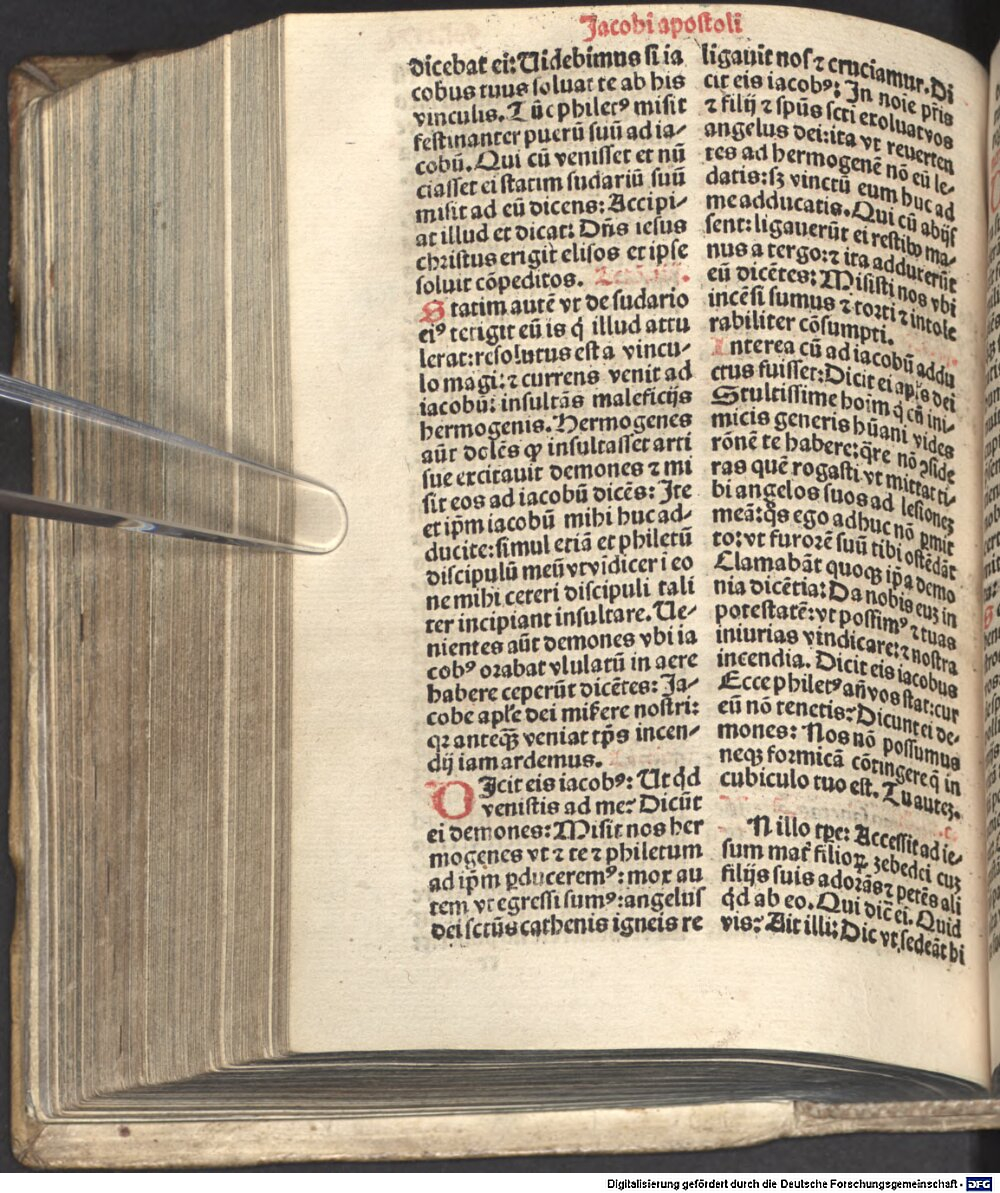 Jacobi apostoli
dicebat ei: Uidebimus si ia
cobus tuus soluat te ab his
vinculis. Tūc philetꝰ misit
festinanter puerū suū ad ia-
cobū. Qui cū venisset et nū
ciasset ei statim sudariū suū
misit ad eū dicens: Accipi-
at illud et dicat: Dn̄s iesus
christus erigit elisos et ipse
soluit cōpeditos.
Statim autē vt de sudario
eiꝰ tetigit eū is q̇ illud attu
lerat: resolutus est a vincu-
lo magi: ⁊ currens venit ad
iacobū: insultās maleficijs
hermogenis. Hermogenes
aūt dolēs ꝙ insultasset arti
sue excitauit demones ⁊ mi
sit eos ad iacobū dicēs: Ite
et ip̄m iacobū mihi huc ad-
ducite: simul etiā et philetū
discipulū meū vt vidicer i eo
ne mihi ceteri discipuli tali
ter incipiant insultare. Ue-
nientes aūt demones vbi ia
cobꝰ orabat vlulatū in aere
habere ceperūt dicētes: Ja-
cobe aptē dei mis̄ere nostri:
qꝛ anteqꝫ veniat tp̄s incen-
dij iam ardemus.
DIcit eis iacobꝰ: Ut qd
venistis ad me? Dicūt
ei demones: Misit nos her
mogenes vt ⁊ te ⁊ philetum
ad ip̄m ꝑduceremꝰ: mox au
tem vt egressi sumꝰ: angelus
dei sctūs cathenis igneis re
ligauit nos ⁊ cruciamur. Di
cit eis iacobꝰ: In noīe pr̄is
⁊ filij ⁊ sp̄us scti exoluat vos
angelus dei: ita vt reuerten
tes ad hermogenē nō eū le-
datis: sꝫ vinctū eum huc ad
me adducatis. Qui cū abijs
sent: ligauerūt ei restibꝰ ma-
nus a tergo: ⁊ ita adduxerūt
eū dicētes: Misisti nos vbi
incēsi sumus ⁊ torti ⁊ intole
rabiliter cōsumpti.
Interea cū ad iacobū addu
ctus fuisset: Dicit ei apl̄s dei
Stultissime hoīm q̇ cū ini-
micis generis hūani vides
rōnē te habere: q̄re nō ꝯside
ras quē rogasti vt mittat ti-
bi angelos suos ad lesionez
meā: q̄s ego adhuc nō ꝑmit
to: vt furorē suū tibi ostēdāt
Clamabāt quoqꝫ ip̄a demo
nia dicētia: Da nobis euꝫ in
potestatē: vt possimꝰ ⁊ tuas
iniurias vindicare: ⁊ nostra
incendia. Dicit eis iacobus
Ecce philetꝰ añ vos stat: cur
eū nō tenetis? Dicunt ei de-
mones: Nos nō possumus
neqꝫ formicā cōtingere q̄ in
cubiculo tuo est. Tu autez.
IN illo tp̄e: Accessit ad ie-
sum mat̄ filioꝝ zebedei cuꝫ
filijs suis adorās ⁊ petēs ali
qd ab eo. Qui dic̄ ei. Quid
vis? Ait illi: Dic vt sedeāt hi
Digitalisierung gefördert durch die Deutsche Forschungsgemeinschaft - DFG